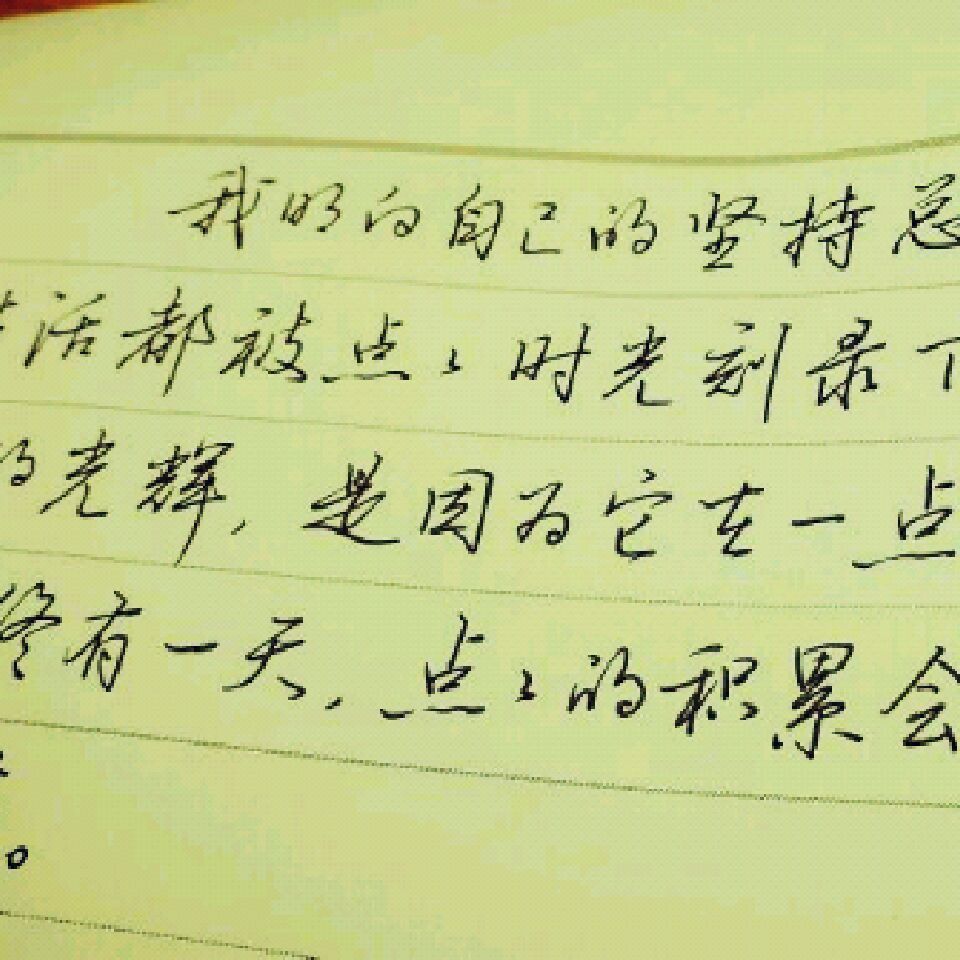 我明白自己的坚持总
活都被点点时光刻录下
的光辉,是因为它在一点
终有一天,点点的积累会
。